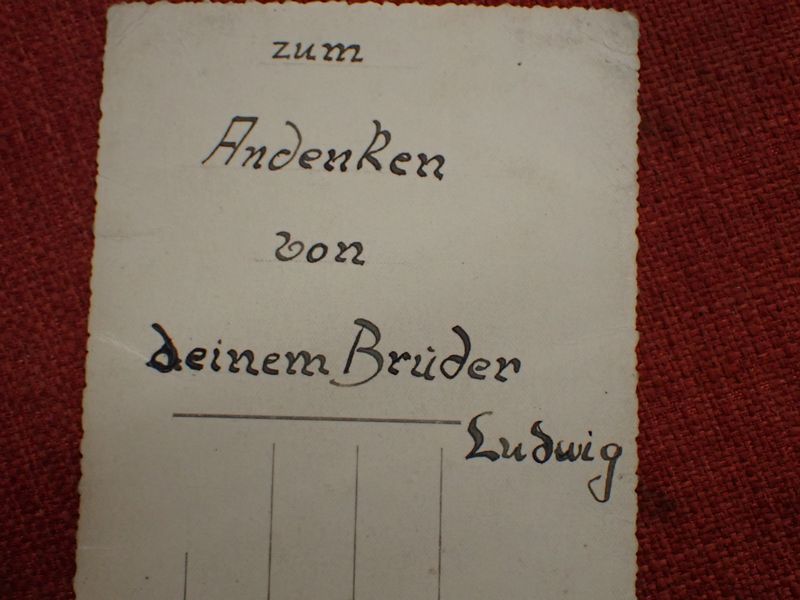 zum
Andenken
von
deinem Bruder
Ludwig